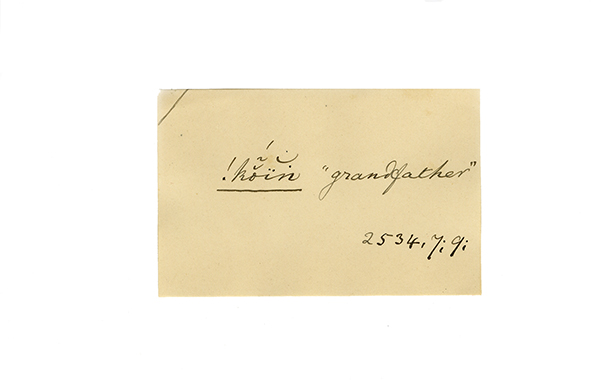 !kõ̆ĭn "grandfather"
2534, 7; 9;